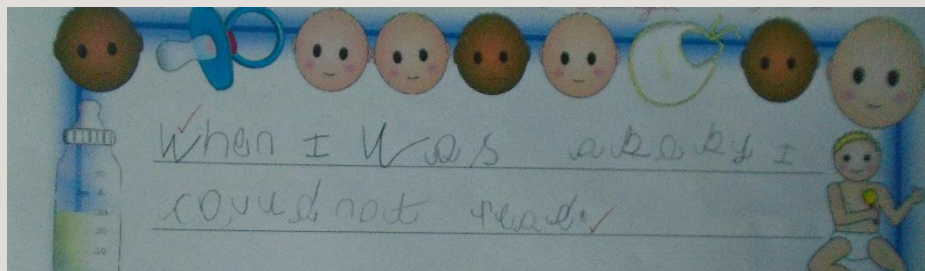 When I Was ababy I
couud not read.